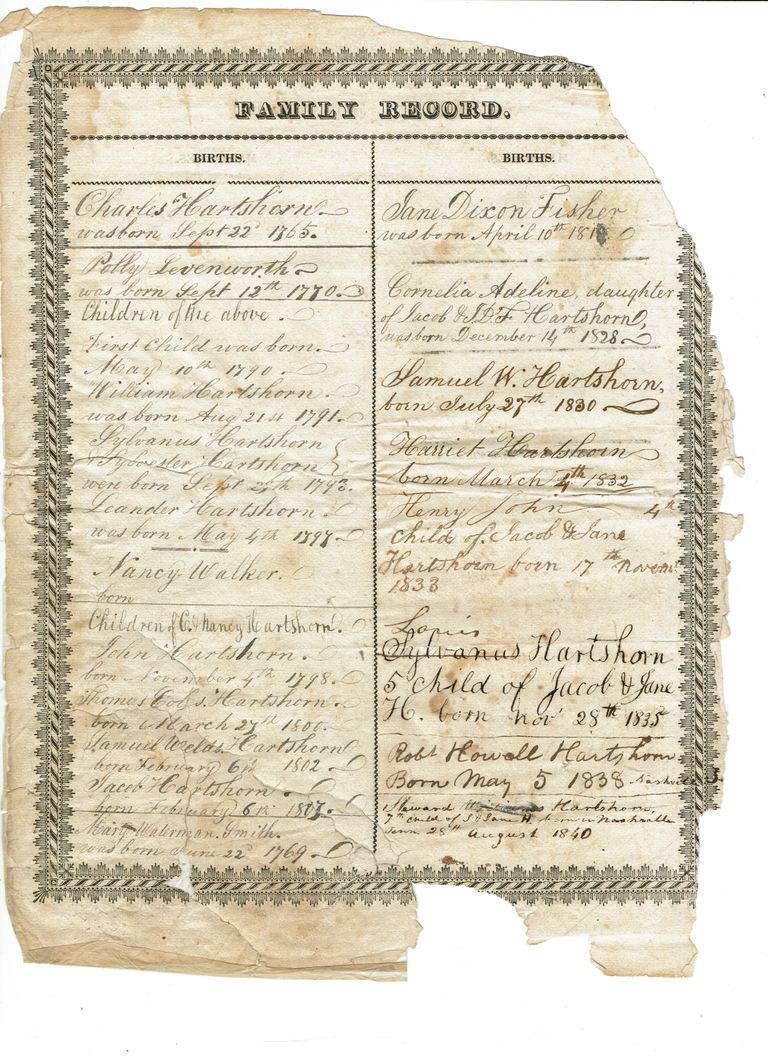 FAMILY RECORD.
BIRTHS.
Charles Hartshorn
was born Sept 22 1765.
Polly Levenworth
was born Sept 12th 1770.
Children of the above.
First Child was born.
May 10th 1790.
William Hartshorn.
was born Aug 21st 1791.
Sylvanus Hartshorn
& Sylvester Hartshorn
were born Sept 1793.
Leander Hartshorn.
was born May 4th 1797.
Nancy Walker.
born
Children of C. & Nancy Hartshorn.
John Hartshorn.
born November 4th 1798.
Thomas Hartshorn.
born March 27th 1800.
Samuel Welds Hartshorn
born February 6th 1802
Jacob Hartshorn.
born February 6th
Mary Waterman Smith.
was born June 22 1769
BIRTHS.
Jane Dixon Fisher
was born April 10th
Cornelia Adeline, daughter
of Jacob & J.D.F. Hartshorn,
was born December 14th 1828
Samuel W. Hartshorn,
born July 27th 1830
Harriet Hartshorn
born March 4th 1832
Henry John 4th
child of Jacob & Jane
Hartshorn born 17th novem
1833
Sylvanus Hartshorn
5 child of Jacob & Jane
H. born nov 28th 1835
Robt Howell Hartshorn
Born May 5 1838 Nashville
Hartshorn,
7th child of J & Jane H born in Nashville
Tenn 28th August 1840